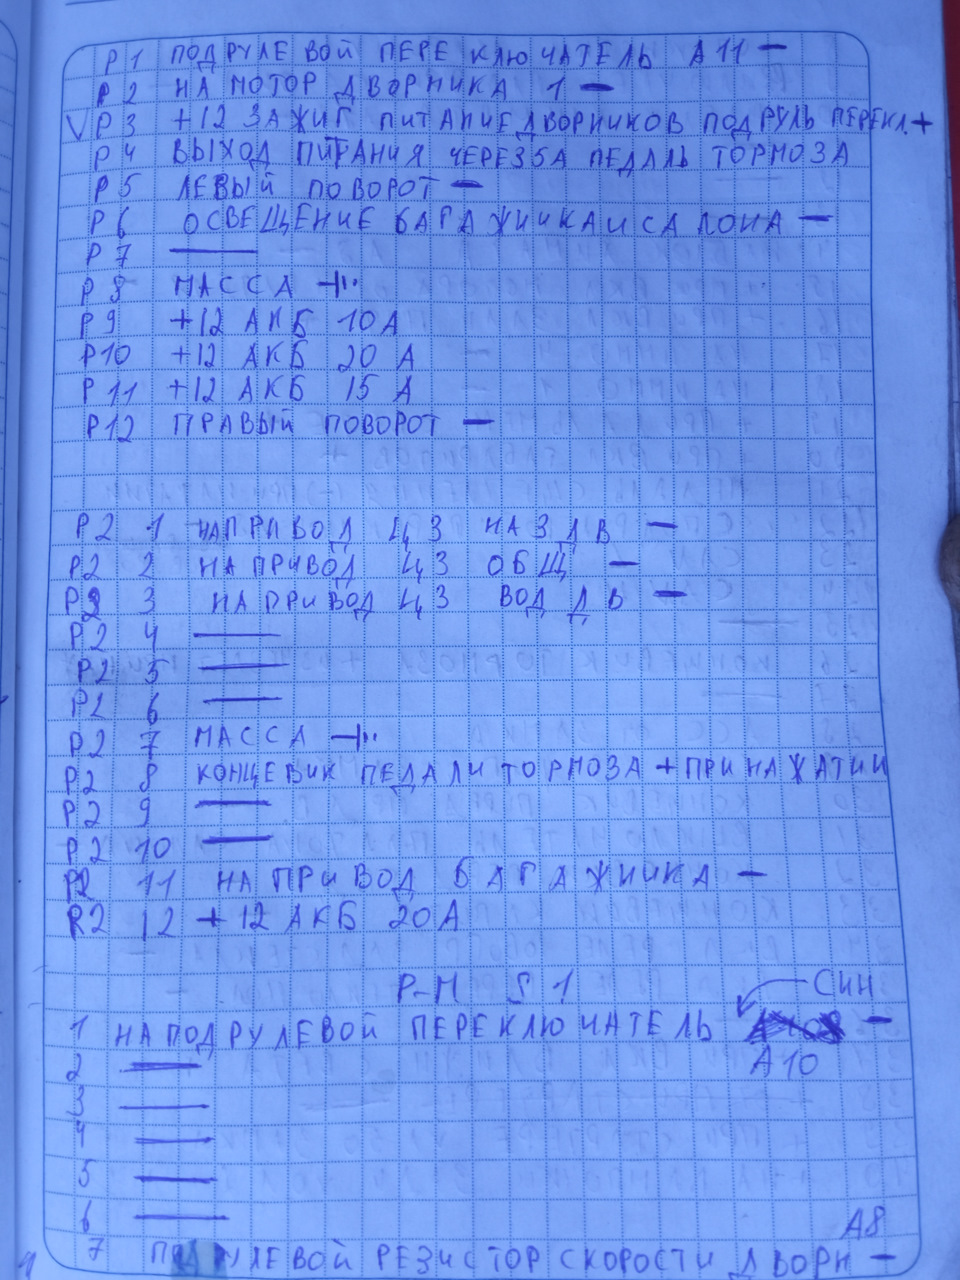 Р1 ПОДРУЛЕВОЙ ПЕРЕКЛЮЧАТЕЛЬ А11 —
Р2 НА МОТОР ДВОРНИКА 1 —
VР3 +12 ЗАЖИГ ПИТАНИЕ ДВОРНИКОВ ПОДРУЛЬ ПЕРЕКЛ. +
Р4 ВЫХОД ПИТАНИЯ ЧЕРЕЗ 5А ПЕДАЛЬ ТОРМОЗА
Р5 ЛЕВЫЙ ПОВОРОТ —
Р6 ОСВЕЩЕНИЕ БАГАЖНИКА И САЛОНА —
Р7 ———
Р8 МАССА
Р9 +12 АКБ 10А
Р10 +12 АКБ 20 А
Р11 +12 АКБ 15 А
Р12 ПРАВЫЙ ПОВОРОТ —
Р2 1 НА ПРИВОД ЦЗ НАЗ ДВ —
Р2 2 НА ПРИВОД ЦЗ ОБЩ —
Р2 3 НА ПРИВОД ЦЗ ВОД ДВ —
Р2 4 ———
Р2 5 ———
Р2 6 ———
Р2 7 МАССА
Р2 8 КОНЦЕВИК ПЕДАЛИ ТОРМОЗА + ПРИ НАЖАТИИ
Р2 9 ———
Р2 10 ———
Р2 11 НА ПРИВОД БАГАЖНИКА —
Р2 12 +12 АКБ 20А
Р-М S1 СИН
1 НА ПОДРУЛЕВОЙ ПЕРЕКЛЮЧАТЕЛЬ —
2 ——— А10
3 ———
4 ———
5 ———
6 ——— А8
7 ПОДРУЛЕВОЙ РЕЗИСТОР СКОРОСТИ ДВОРН —